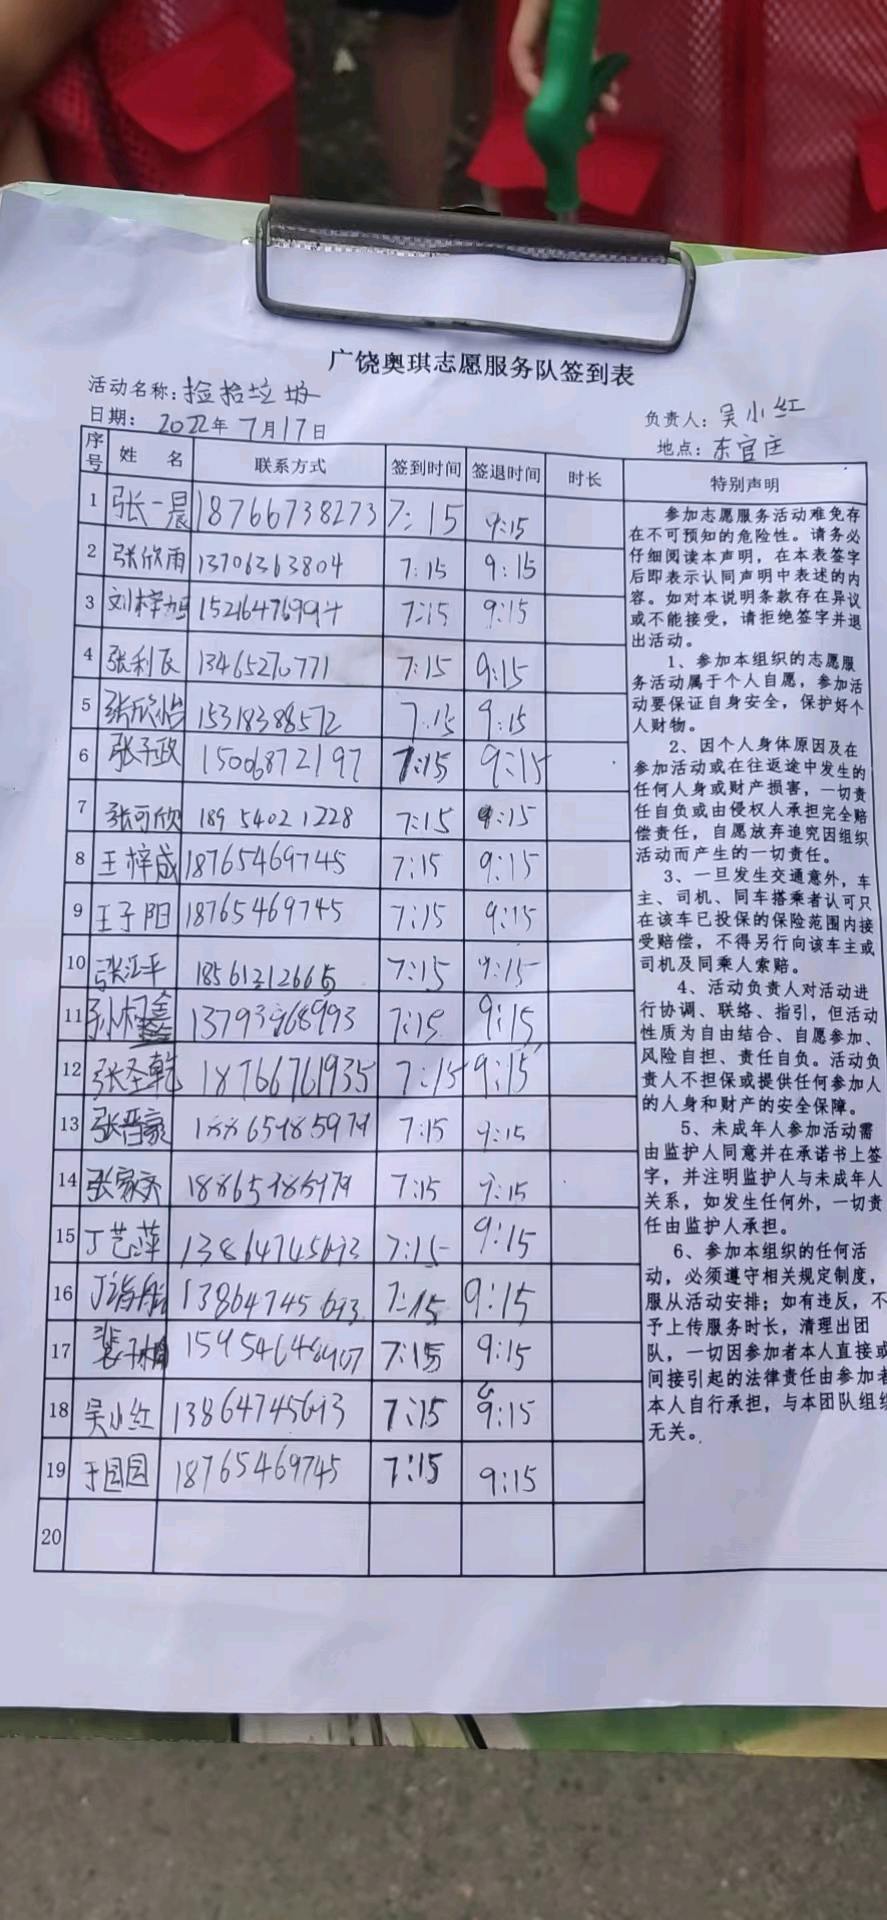 广饶奥琪志愿服务队签到表
活动名称：捡拾垃圾
负责人：吴小红
日期：2022年7月17日
地点：东官庄
序号 姓名 联系方式 签到时间 签退时间 时长 特别声明
1 张一晨 18766738273 7:15 9:15
2 张欣雨 13706363804 7:15 9:15
3 刘梓 15216476994 7:15 9:15
4 张利 13465270771 7:15 9:15
5 张欣怡 15318388572 7:15 9:15
6 张子政 15006872197 7:15 9:15
7 张可欣 189 5402 1228 7:15 9:15
8 王梓成 18765469745 7:15 9:15
9 王子阳 18765469745 7:15 9:15
10 张江平 18561312665 7:15 9:15
11 孙柯鑫 13793968993 7:15 9:15
12 张圣乾 18766761935 7:15 9:15
13 张晋豪 7:15 9:15
14 张家 7:15 9:15
15 丁艺萍 13864745693 7:15 9:15
16 丁 13864745693 7:15 9:15
17 裴子 15954648907 7:15 9:15
18 吴小红 13864745693 7:15 9:15
19 于园园 18765469745 7:15 9:15
20
参加志愿服务活动难免存
在不可预知的危险性。请务必
仔细阅读本声明，在本表签字
后即表示认同声明中表述的内
容。如对本说明条款存在异议
或不能接受，请拒绝签字并退
出活动。
1、参加本组织的志愿服
务活动属于个人自愿，参加活
动要保证自身安全，保护好个
人财物。
2、因个人身体原因及在
参加活动或在往返途中发生的
任何人身或财产损害，一切责
任自负或由侵权人承担完全赔
偿责任，自愿放弃追究因组织
活动而产生的一切责任。
3、一旦发生交通意外，车
主、司机、同车搭乘者认可只
在该车已投保的保险范围内接
受赔偿，不得另行向该车主或
司机及同乘人索赔。
4、活动负责人对活动进
行协调、联络、指引，但活动
性质为自由结合、自愿参加、
风险自担、责任自负。活动负
责人不担保或提供任何参加人
的人身和财产的安全保障。
5、未成年人参加活动需
由监护人同意并在承诺书上签
字，并注明监护人与未成年人
关系，如发生任何外，一切责
任由监护人承担。
6、参加本组织的任何活
动，必须遵守相关规定制度，
服从活动安排；如有违反，不
予上传服务时长，清理出团
队，一切因参加者本人直接或
间接引起的法律责任由参加者
本人自行承担，与本团队组织
无关。